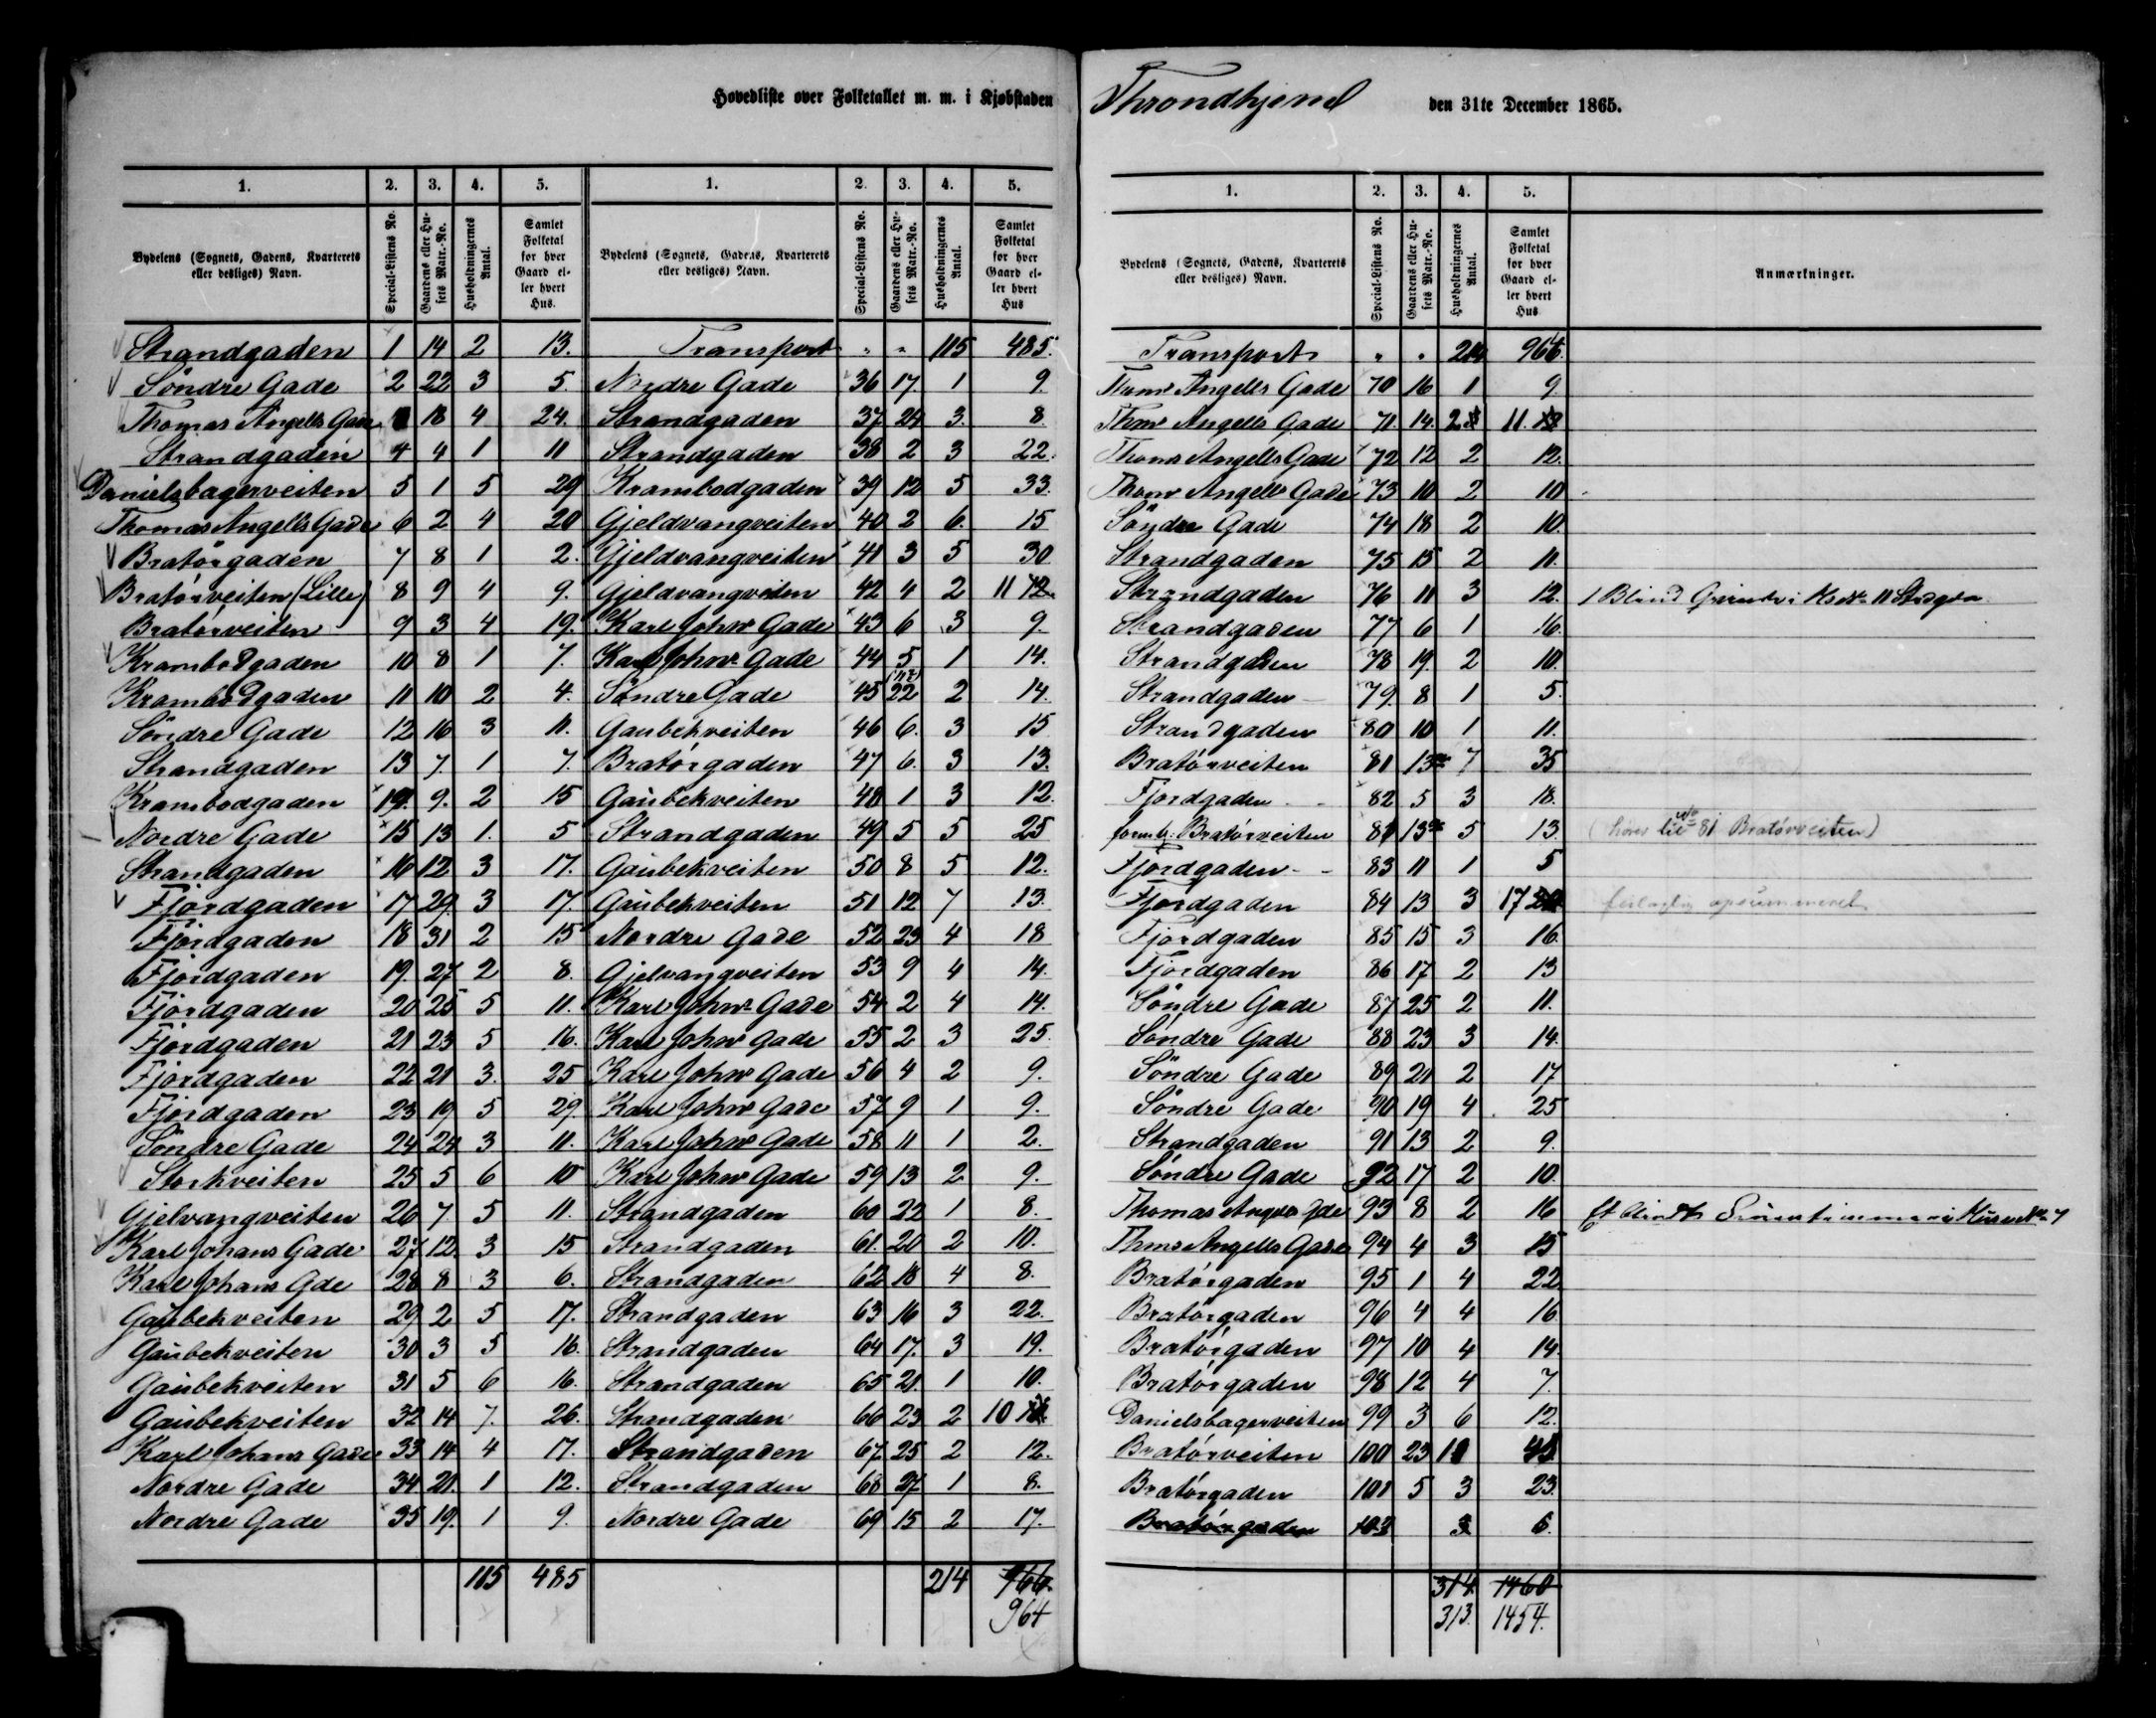 Hovedliste over Folketallet m. m. i Kjøbstaden Throndhjend den 31te December 1865.
1. 2. 3. 4. 5. 1. 2. 3. 4. 5.
Bydelens (Sognets, Gadens, Kvarterets eller desliges) Navn. Special-Listens No. Gaardens eller Husets Matr.-No. Husholdningernes Antal. Samlet Folketal for hver Gaard eller hvert Hus. Bydelens (Sognets, Gadens, Kvarterets eller desliges) Navn. Special-Listens No. Gaardens eller Husets Matr.-No. Husholdningernes Antal. Samlet Folketal for hver Gaard eller hvert Hus
Strandgaden 1 14 2 13. Transport " " 115 485.
Söndre Gade 2 22 3 5. Nordre Gade 36 17. 1 9.
Thomas Angells Gade 18 4 24. Strandgaden 37 24 3. 8.
Strandgaden 4 4 1 11 Strandgaden 38 2 3 22.
Danielsbagerveiten 5 1 5 29 Krambodgaden 39 12 5 33.
Thomas Angells Gade 6 2 4 20 Gjeldvangveiten 40 2 6. 15
Bratörgaden 7 8 1 2. Gjeldvangveiten 41 3 5 30
Bratörveiten (Lille) 8 9 4 9. Gjeldvangveiten 42 4 2 11 12.
Bratörveiten 9 3 4 19. Karl Johns Gade 43 6 3 9.
Krambodgaden 10 8 1 7. Karl Johns Gade 44 5 1 14.
Krambodgaden 11 10 2 4. Söndre Gade 45 22 2 14.
Söndre Gade 12 16 3 11. Gaubekveiten 46 6. 3 15
Strandgaden 13 7. 1 7. Bratörgaden 47 6. 3 13.
Krambodgaden 14. 9. 2 15 Gaubekveiten 48 1 3 12.
Nordre Gade 15 13 1. 5 Strandgaden 49 5 5 25
Strandgaden 16 12 3 17. Gaubekveiten 50 8 5 12.
Fjordgaden 17 29. 3 17. Gaubekveiten 51 12 7 13.
Fjordgaden 18 31 2 15 Nordre Gade 52 23 4 18
Fjordgaden 19. 27 2 8. Gjelvangveiten 53 9 4 14.
Fjordgaden 20 25 5 11. Karl Johns Gade 54 2 4 14.
Fjordgaden 21 23 5 16. Karl Johns Gade 55 2 3 25.
Fjordgaden 22 21 3. 25 Karl Johns Gade 56 4 2 9.
Fjordgaden 23 19 5 29 Karl Johns Gade 57 9 1 9.
Söndre Gade 24 24 3 11. Karl Johns Gade 58 11 1 2.
Storkveiten 25 5 6 10 Karl Johns Gade 59 13 2 9.
Gjelvangveiten 26 7. 5 11. Strandgaden 60 22 1 8.
Karl Johans Gade 27 12 3 15 Strandgaden 61. 20 2 10.
Karl Johans Gde 28 8 3 6. Strandgaden 62 18 4 8.
Gaubekveiten 29 2 5 17. Strandgaden 63 16 3 22.
Gaubekveiten 30 3 5 16. Strandgaden 64 17. 3 19.
Gaubekveiten 31 5 6 16. Strandgaden 65 21. 1 10.
Gaubekveiten 32 14 7. 26. Strandgaden 66 23 2 10
Karl Johans Gade 33 14 4 17. Strandgaden 67. 25 2 12.
Nordre Gade 34 21. 1 12. Strandgaden 68 27 1 8.
Nordre Gade 35 19. 1 9. Nordre Gade 69 15 2 17.
115 485 214 966.
964
1. 2. 3. 4. 5.
Bydelens (Sognets, Gadens, Kvarterets eller desliges) Navn. Special-Listens No. Gaardens eller Husets Matr.-No. Husholdningernes Antal. Samlet Folketal for hver Gaard eller hvert Hus Anmærkninger.
Transport " " 214 964.
Thoms Angells Gade 70 16 1 9.
Thms Angells Gade 71. 14. 2 11.
Thoms Angells Gade 72 12 2 12.
Thoms Angells Gade 73 10 2 10
Söndre Gade 74 18 2 10.
Strandgaden 75 15 2 11.
Strandgaden 76 11 3 12. 1 Blind
Strandgaden 77 6 1 16.
Strandgaden 78 19. 2 10.
Strandgaden 79. 8 1 5.
Strandgaden 80 10 1 11.
Bratörveiten 81 13 7 35
Fjordgaden 82 5 3 18.
Bratörveiten 81 13 5 13. (hører til No 81 Bratörveiten)
Fjordgaden 83 11 1 5
Fjordgaden 84 13 3 17 feilagtig opsummeret
Fjordgaden 85 15 3 16.
Fjordgaden 86 17 2 13
Söndre Gade 87 25 2 11.
Söndre Gade 88 23 3 14.
Söndre Gade 89 21 2 17
Söndre Gade 90 19 4 25
Strandgaden 91 13 2 9.
Söndre Gade 92 17 2 10.
Thomas Angels Gde 93 8 2 16
Thms Angells Gade 94 4 3 15
Bratörgaden 95 1 4 22
Bratörgaden 96 4 4 16
Bratörgaden 97 10 4 14.
Bratörgaden 98 12 4 7.
Danielsbagerveiten 99 3 6 12.
Bratörveiten 100 23
Bratörgaden 101 5 3 23.
Bratörgaden 3 6.
314 1460
313. 1454.